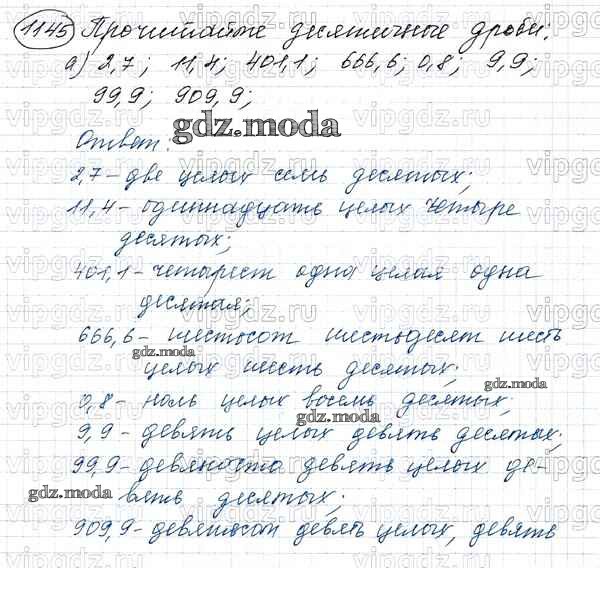 1145 Прочитайте десятичные дроби:
а) 2,7; 11,4; 401,1; 666,6; 0,8; 9,9;
99,9; 909,9;
gdz.moda
Ответ:
2,7 - две целых семь десятых;
11,4 - одиннадцать целых четыре
десятых;
401,1 - четырест одна целая одна
десятая;
666,6 - шестьсот шестьдесят шесть
gdz.moda
целых шесть десятых;
gdz.moda
0,8 - ноль целых восемь десятых;
gdz.moda
9,9 - девять целых девять десятых;
99,9 - девяносто девять целых де-
gdz.moda
вять десятых;
909,9 - девятьсот девять целых, девять
vipgdz.ru